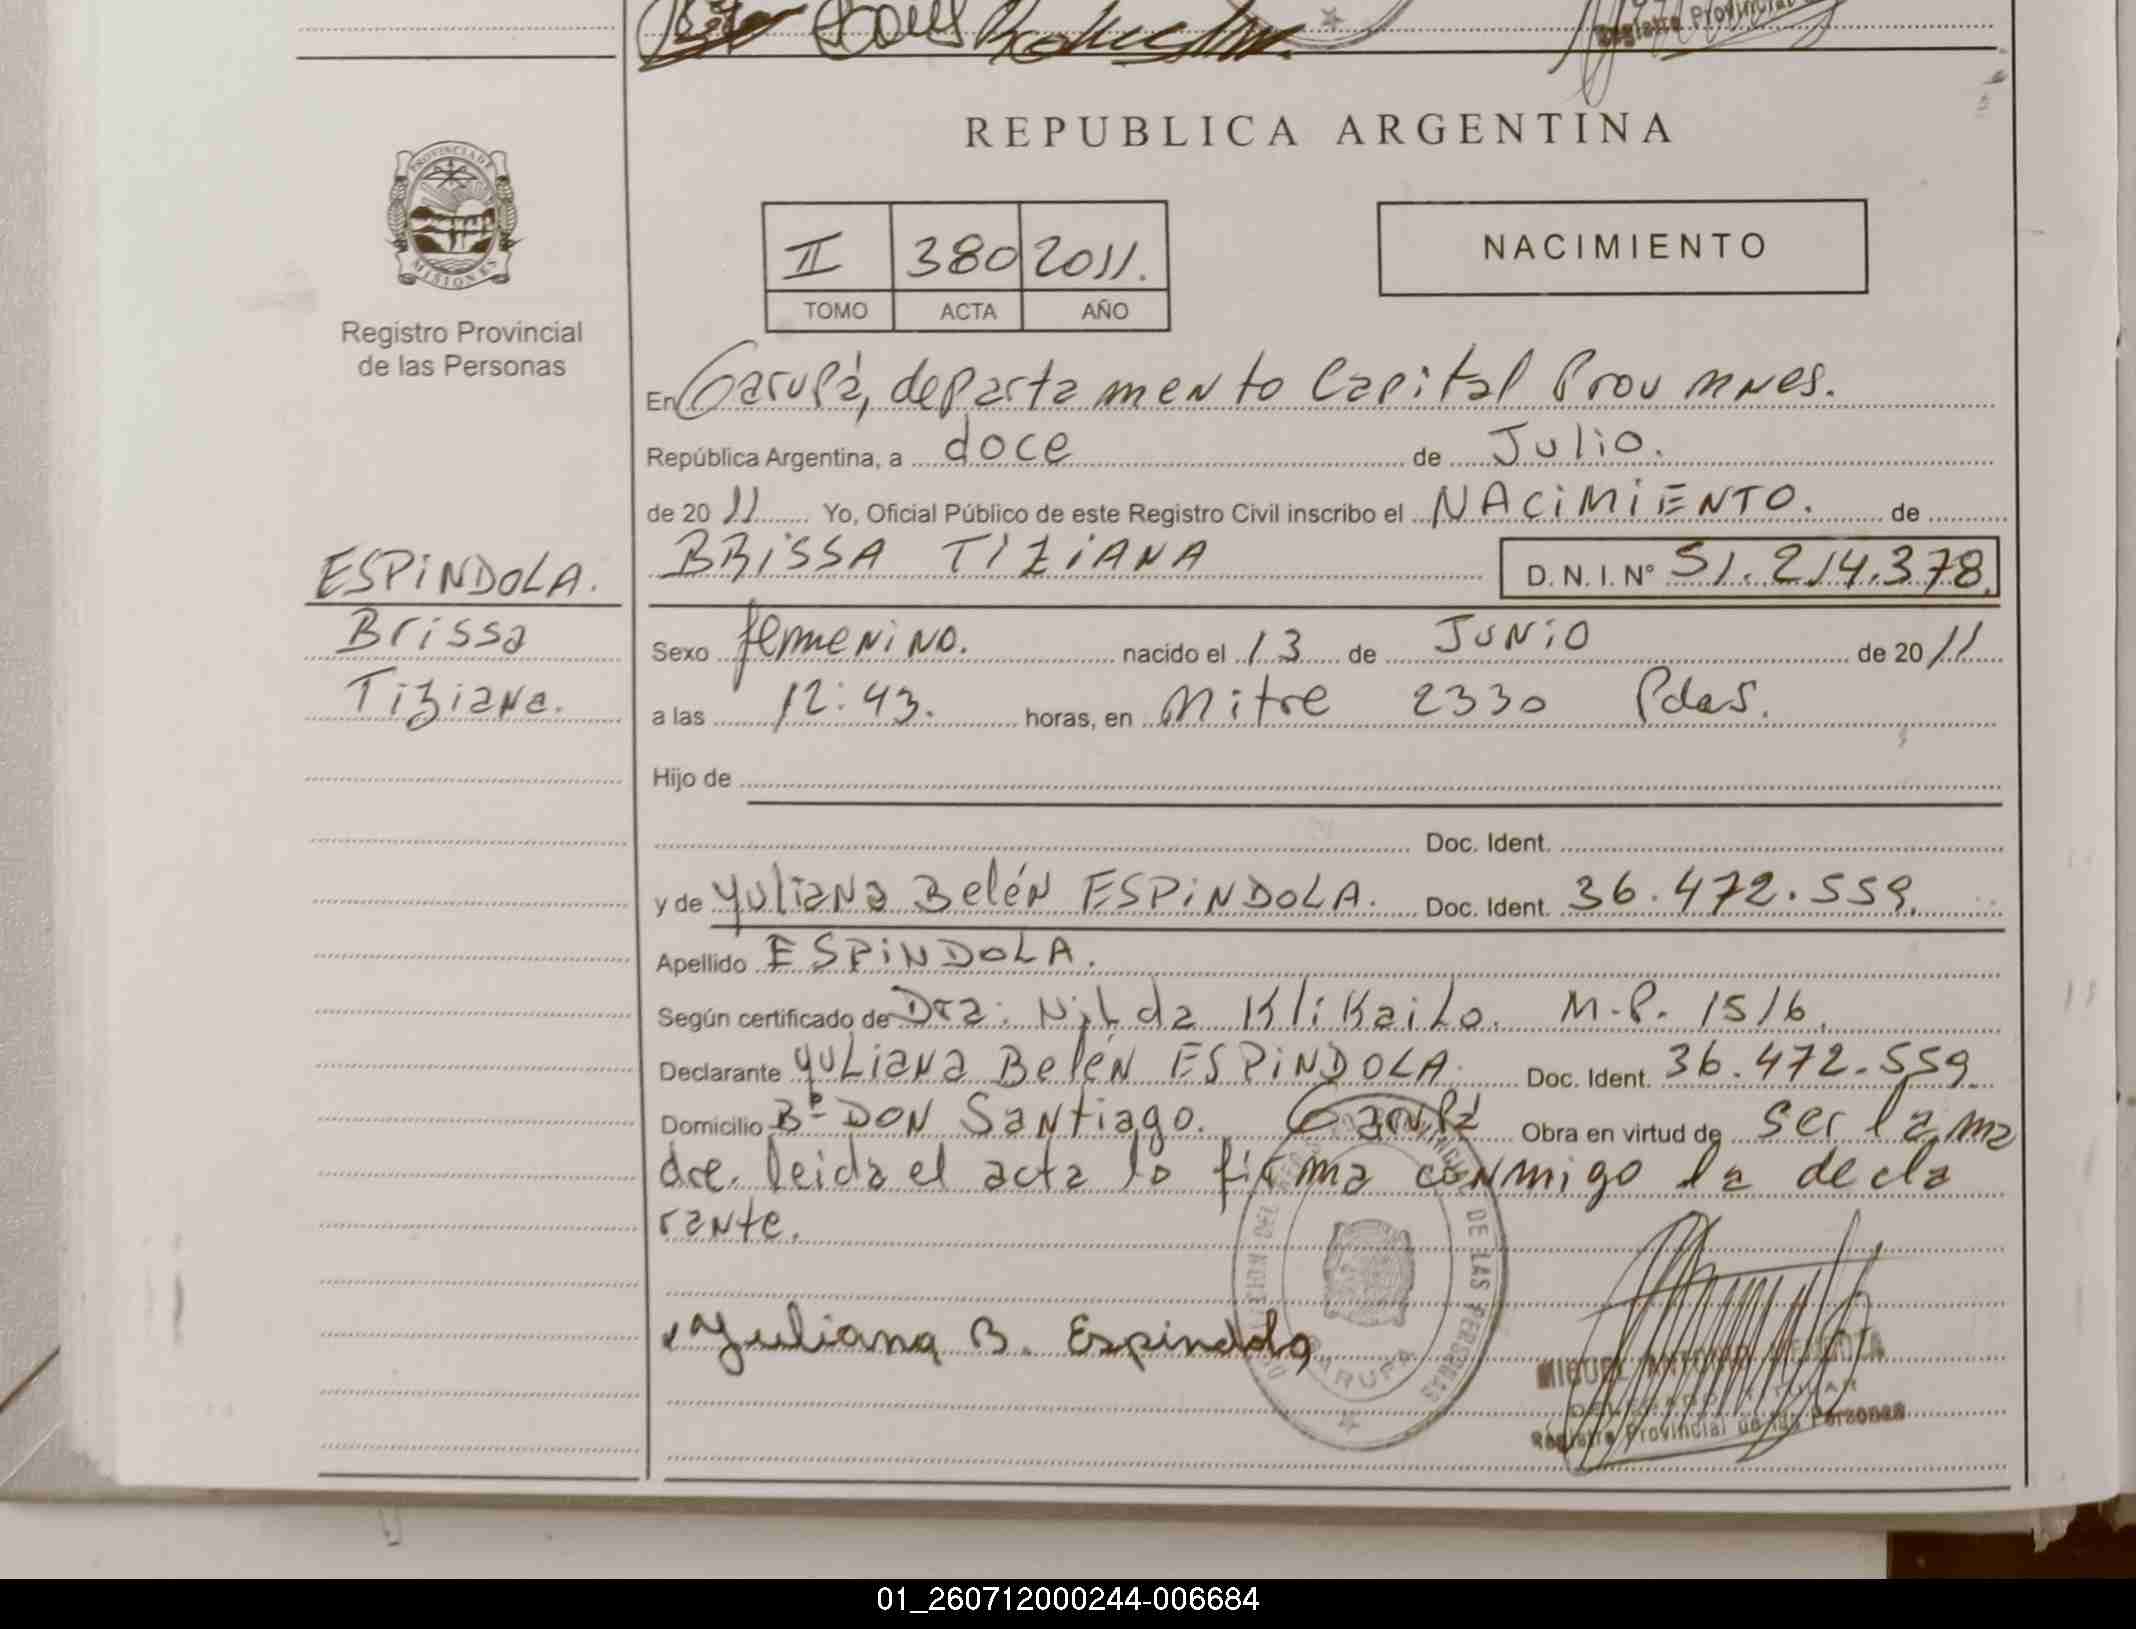 Registro Provincial
REPUBLICA ARGENTINA
PROVINCIA DE
MISIONES
Registro Provincial
de las Personas
II 380 2011.
TOMO ACTA AÑO
NACIMIENTO
En Garupá, departamento Capital Prov mnes.
República Argentina, a doce de Julio.
de 2011 Yo, Oficial Público de este Registro Civil inscribo el NACIMIENTO. de
BRISSA TIZIANA D. N. I. Nº 51.214.378.
ESPINDOLA.
Brissa
Tiziana.
Sexo femenino. nacido el 13 de JUNIO de 2011
a las 12:43. horas, en Mitre 2330 Pdas.
Hijo de
Doc. Ident.
y de Yuliana Belén ESPINDOLA. Doc. Ident. 36.472.559.
Apellido ESPINDOLA.
Según certificado de Dra: Nilda Klikailo. M.P. 1516.
Declarante Yuliana Belén ESPINDOLA. Doc. Ident. 36.472.559
Domicilio Bº DON Santiago. Garupá Obra en virtud de ser la ma
dre. leida el acta lo firma conmigo la decla
rante.
Yuliana B. Espindola
DE LAS PERSONAS
GARUPA
MIGUEL ANTONIO
DELEGADO TITULAR
Registro Provincial de las Personas
01_260712000244-006684